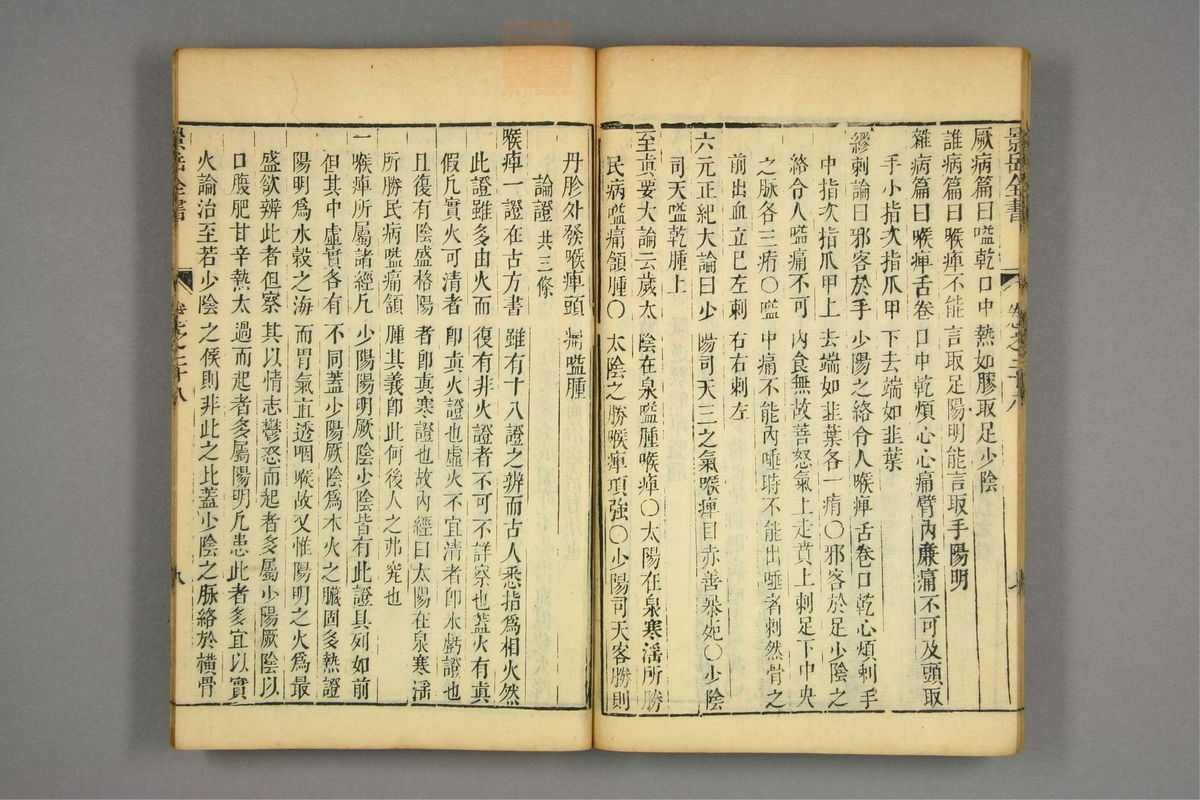 景岳全書
卷之二十八
厥病篇曰嗌乾口中熱如膠取足少陰
雜病篇曰喉痺不能言取足陽明能言取手陽明
雜病篇曰喉痺舌卷口中乾煩心心痛臂內廉痛不可及頭取
手小指次指爪甲下去端如韭葉
繆刺論曰邪客於手少陽之絡令人喉痺舌卷口乾心煩刺手
中指次指爪甲上去端如韭葉各一痏〇邪客於足少陰之
絡令人嗌痛不可內食無故善怒氣上走賁上刺足下中央
之脉各三痏〇嗌中痛不能內唾時不能出唾者刺然骨之
前出血立已左刺右右刺左
六元正紀大論曰少陽司天三之氣喉痺目赤善暴死〇少陰
司天嗌乾腫上
至眞要大論云歲太陰在泉嗌腫喉痺〇太陽在泉寒淫所勝
民病嗌痛頷腫〇太陰之勝喉痺項強〇少陽司天客勝則
丹胗外發喉痺頭痛嗌腫
論證共三條
喉痺一證在古方書雖有十八證之辨而古人悉指爲相火然
此證雖多由火而復有非火證者不可不詳察也葢火有眞
假凡實火可清者卽眞火證也虛火不宜清者卽水虧證也
且復有陰盛格陽者卽眞寒證也故內經曰太陽在泉寒淫
所勝民病嗌痛頷腫其義卽此何後人之弗究也
一喉痺所屬諸經凡少陽陽明厥陰少陰皆有此證具列如前
但其中虛實各有不同葢少陽厥陰爲木火之臟固多熱證
陽明爲水穀之海而胃氣直透咽喉故又惟陽明之火爲最
盛欲辨此者但察其以情志鬱怒而起者多屬少陽厥陰以
口腹肥甘辛熱太過而起者多屬陽明凡患此者多宜以實
火論治至若少陰之候則非此之比葢少陰之脉絡於橫骨
景岳全書
卷之二十八
九